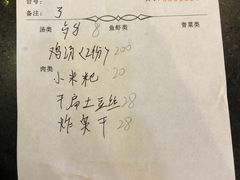 台号:
备注: 3
汤类 鱼虾类 青菜类
鸡汤(2份) 200
肉类
小米粑 20
干扁土豆丝 28
炸臭干 28